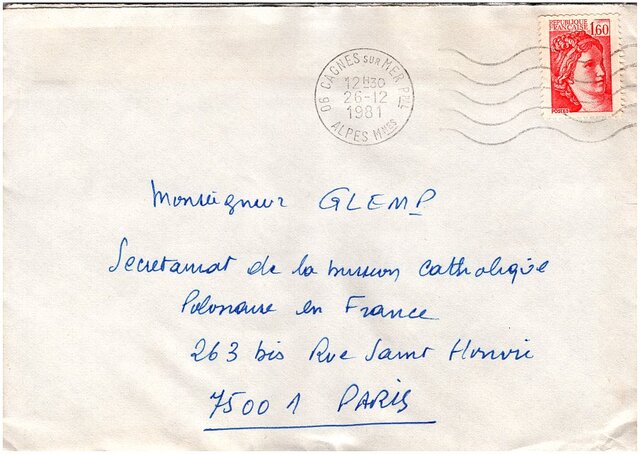 REPUBLIQUE
FRANÇAISE 1,60
POSTES
06 CAGNES SUR MER PPAL
12H30
26-12
1981
ALPES MMES
Monseigneur GLEMP
Secretariat de la mission catholique
Polonaise en France
263 bis Rue Saint Honoré
75001 PARIS